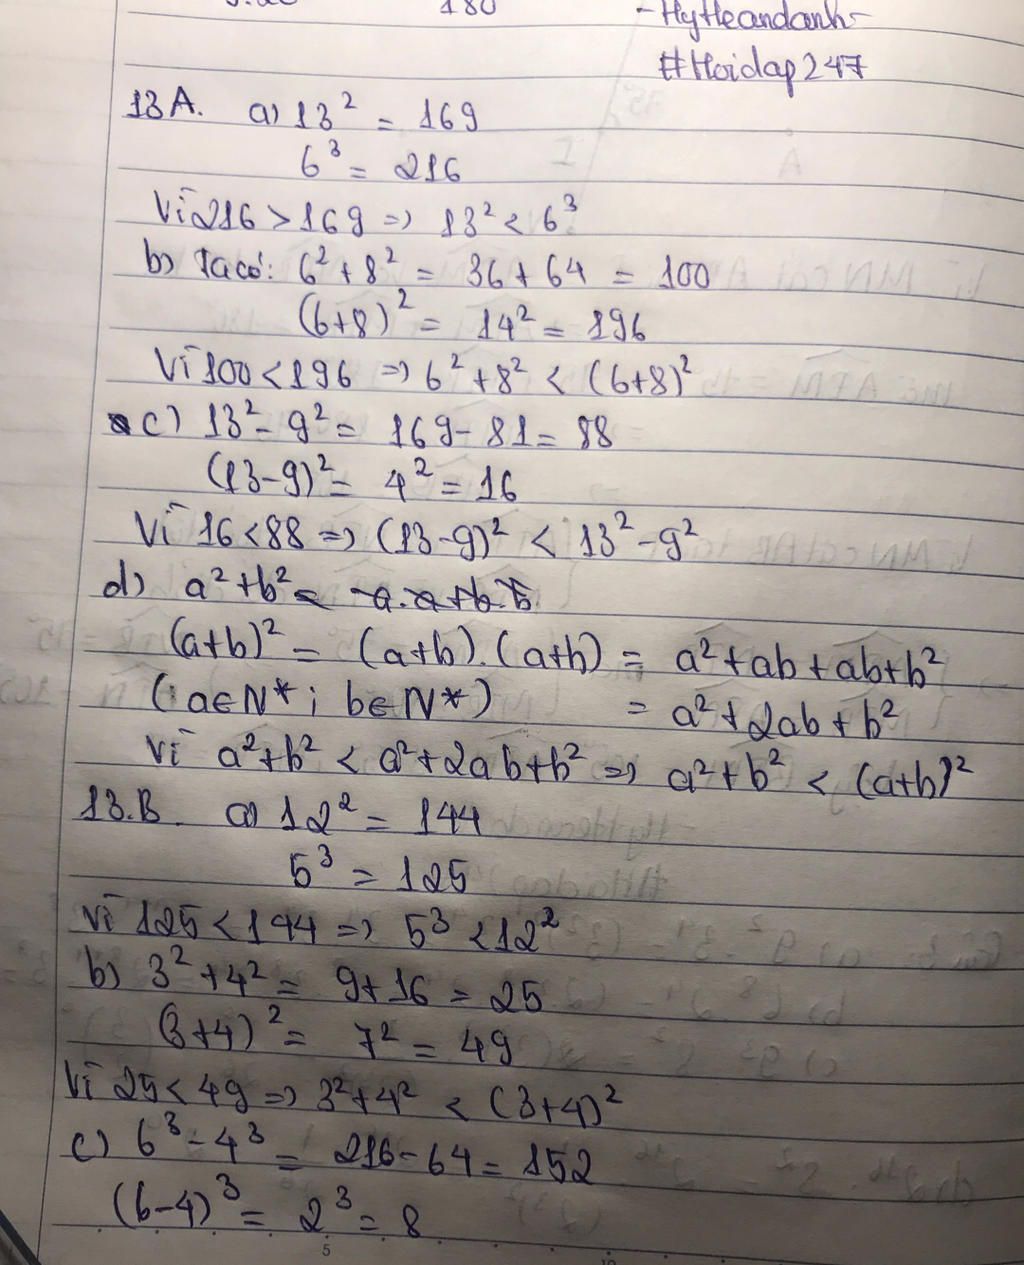 180
-HyHeandanh-
#Hoidap247
13A. a) 13² = 169
6³ = 216
Vì 216 > 169 => 13² < 6³
b) Ta có: 6² + 8² = 36 + 64 = 100
(6+8)² = 14² = 196
Vì 100 < 196 => 6² + 8² < (6+8)²
c) 13² - 9² = 169 - 81 = 88
(13-9)² = 4² = 16
Vì 16 < 88 => (13-9)² < 13² - 9²
d) a² + b² = a.a + b.b
(a+b)² = (a+b).(a+b) = a² + ab + ab + b²
(a∈N*; b∈N*) = a² + 2ab + b²
Vì a² + b² < a² + 2ab + b² => a² + b² < (a+b)²
13.B. a) 12² = 144
5³ = 125
Vì 125 < 144 => 5³ < 12²
b) 3² + 4² = 9 + 16 = 25
(3+4)² = 7² = 49
Vì 25 < 49 => 3² + 4² < (3+4)²
c) 6³ - 4³ = 216 - 64 = 152
(6-4)³ = 2³ = 8
5
10